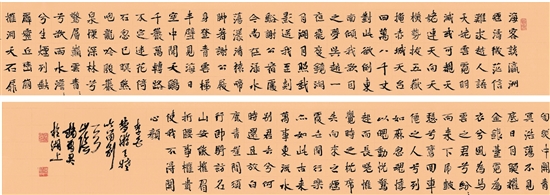 海客談瀛洲
煙濤微茫信
難求越人語
天姥雲霓明
滅或可睹天
姥連天向天
橫勢拔五岳
掩赤城天台
四萬八千丈
對此欲倒東
南傾我欲因
之夢吳越一
夜飛度鏡湖
月湖月照我
影送我至剡
溪謝公宿處
今尚在淥水
蕩漾清猿啼
腳著謝公屐
身登青雲梯
半壁見海日
空中聞天雞
千巖萬轉路
不定迷花倚
石忽已暝熊
咆龍吟殷巖
泉慄深林兮
驚層巔雲青青
兮欲雨水澹澹
兮生煙列缺
霹靂丘巒崩
摧洞天石扉
訇然中開青
冥浩蕩不見
底日月照耀
金銀臺霓為
衣兮風為馬
雲之君兮紛紛
而來下虎鼓
瑟兮鸞回車
仙之人兮列
如麻忽魂悸
以魄動怳驚
起而長嗟惟
覺時之枕席
失向來之煙
霞世間行樂
亦如此古來
萬事東流水
別君去兮何
時還且放白
鹿青崖間須
行即騎訪名
山安能摧眉
折腰事權貴
使我不得開
心顏
李白
夢遊天姥
吟留別
於湖上